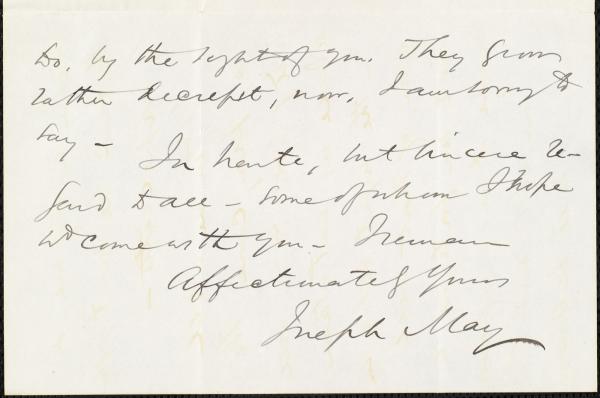 so, by the sight of you. They grow
rather decrepit, now, I am sorry to
say –
In haste, but sincere re-
gard to all – some of whom I hope
wd come with you – I remain
Affectionately Yours
Joseph May